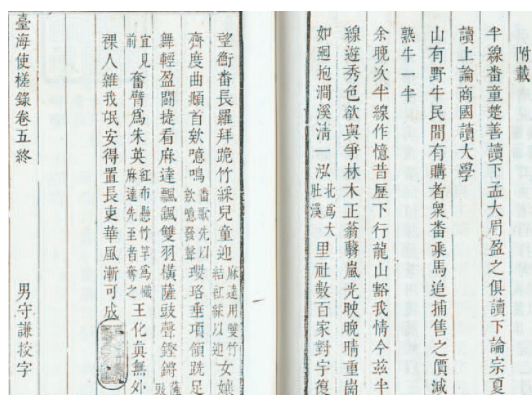 附載
半線番童楚善讀下孟大眉盈之俱讀下論宗夏
讀上論商國讀大學
山有野牛民間有購者衆番乘馬追捕售之價減
熟牛一半
余晚次半線作憶昔歷下行龍山豁我情今茲半
線遊秀色欲與爭林木正蓊翳嵐光映晚晴重崗
如廻抱澗溪清一泓北為大肚溪里社數百家對宇復
望衡番長羅拜跪竹綵兒童迎麻達用雙竹結紅綵以迎女孃
齊度曲頫首款噫鳴番歌先以款噫發聲瓔珞垂項領跣足
舞輕盈鬪捷看麻達飄颻雙羽橫薩豉聲鏗鏘薩豉
宜見前奮臂為朱英紅布懸竹竿為幟麻達先至者奪之王化真無外
裸人雜我氓安得置長吏華風漸可成
臺海使槎錄卷五終 男守謙校字